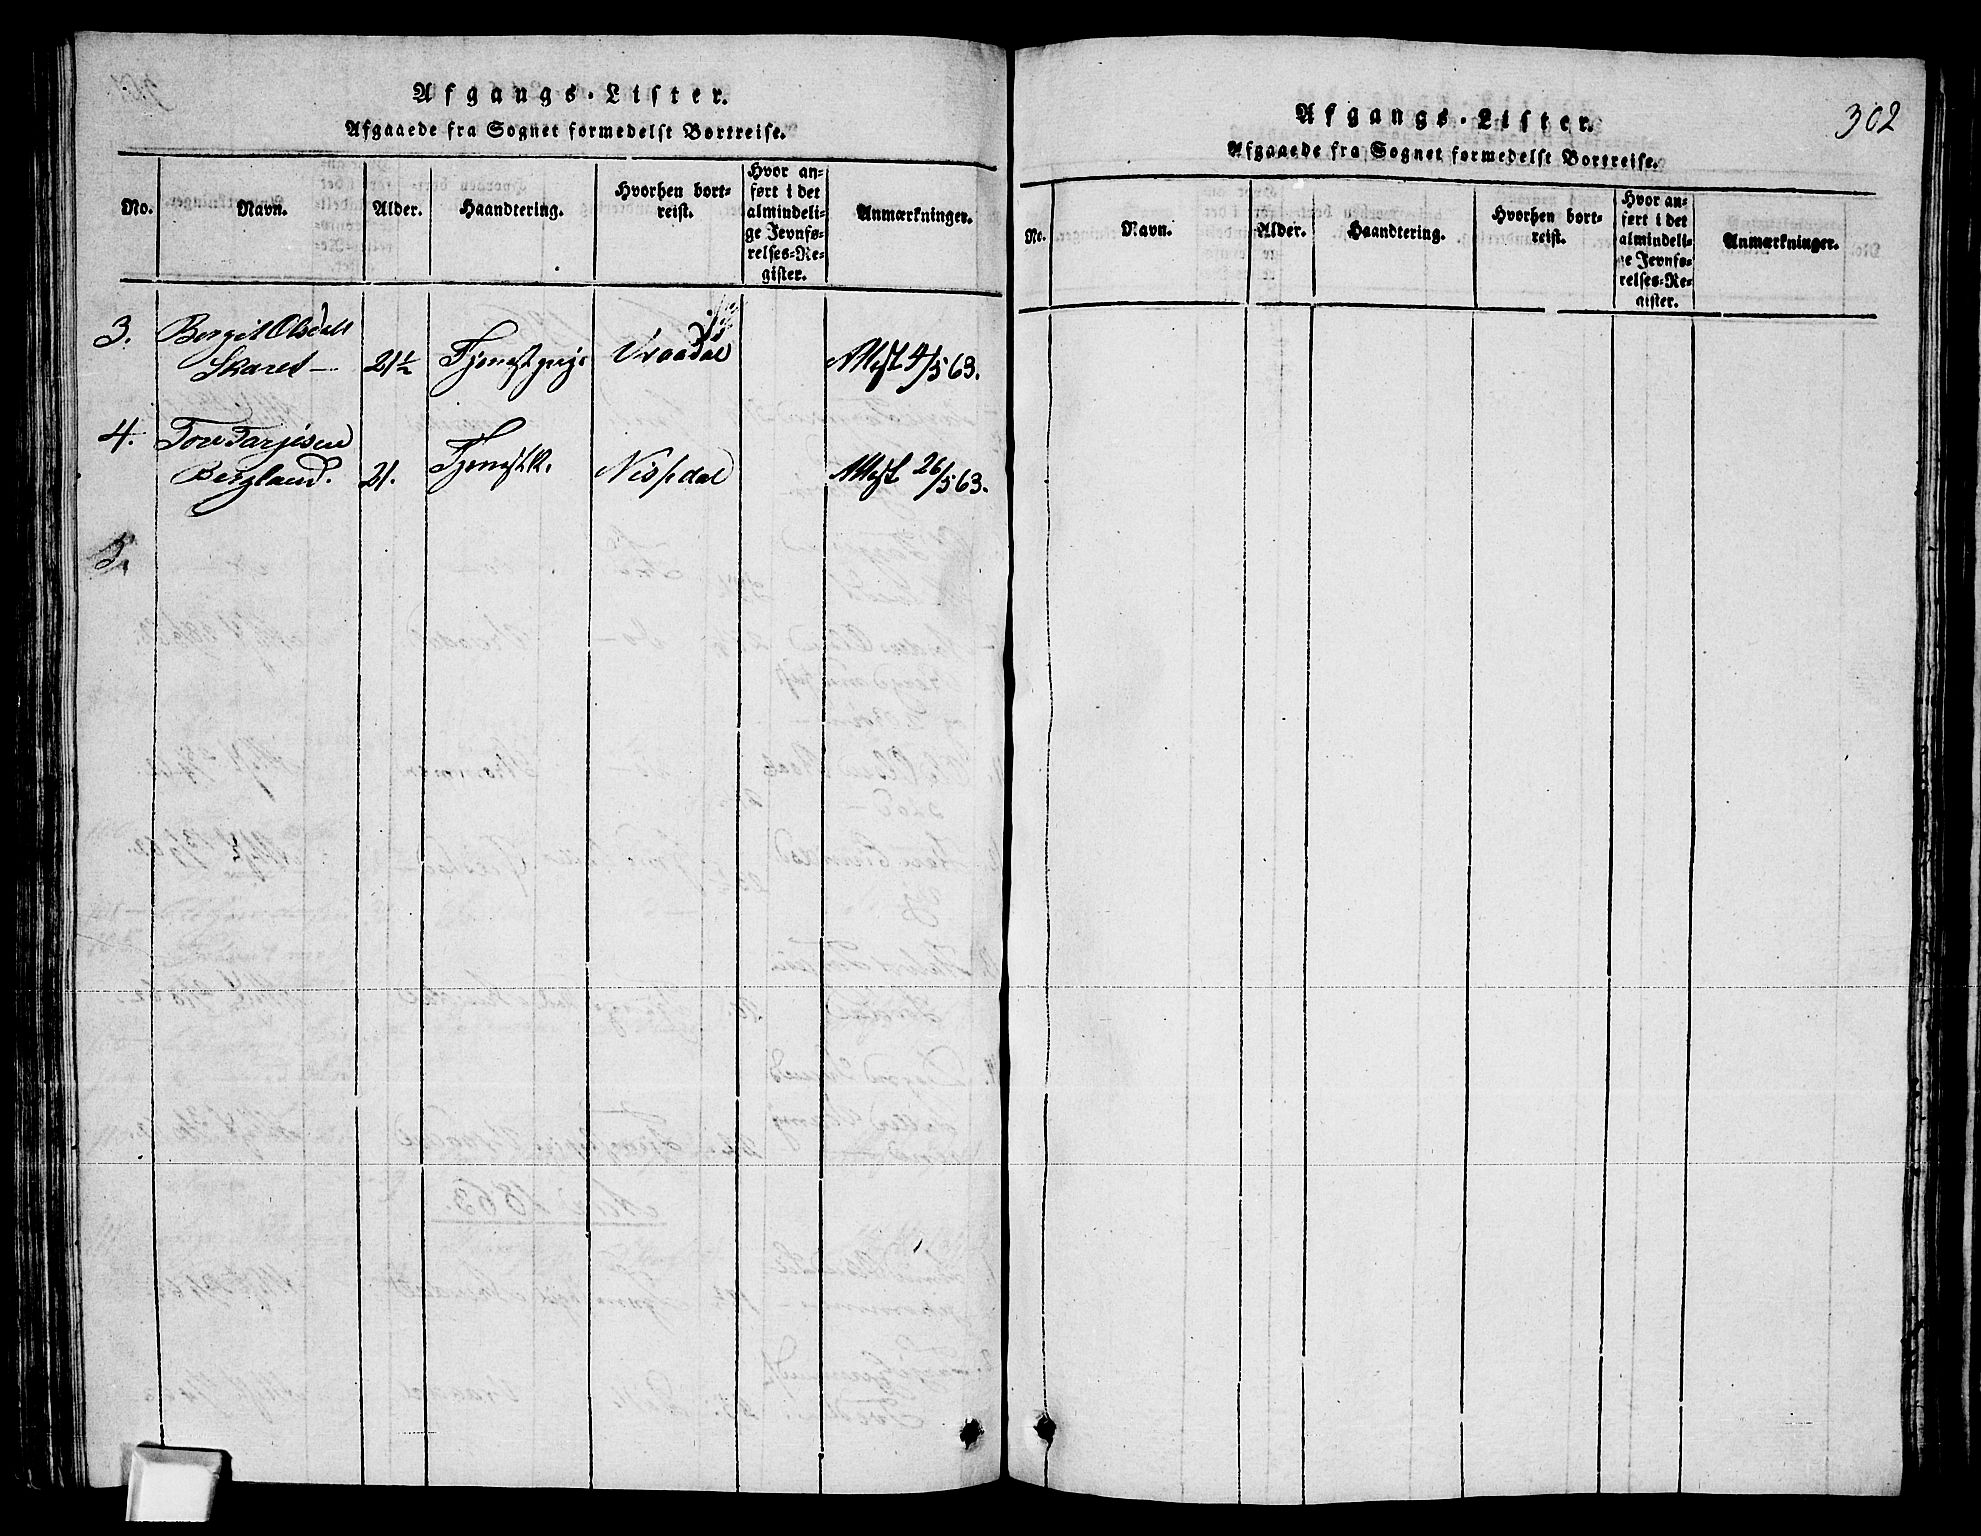 Afgangs-Lister.
Afgaaede fra Sognet formedelst Bortreise.
No. Navn. Alder. Haandtering. Hvorhen bort-
reist. Hvor an-
ført i det
almindeli-
ge Jevnfø-
relses-Re-
gister. Anmærkninger.
3. Bergit Olsdatt
Skaret — 21½ Tjenestpige Vraadal Attest 4/5 63.
4. Tov Tarjesen
Bergland. 21. Tjenestk. Nissedal Attest 26/5 63.
5.
302
Afgangs-Lister.
Afgaaede fra Sognet formedelst Bortreise.
No. Navn. Alder. Haandtering. Hvorhen bort-
reist. Hvor an-
ført i det
almindeli-
ge Jevnfø-
relses-Re-
gister. Anmærkninger.